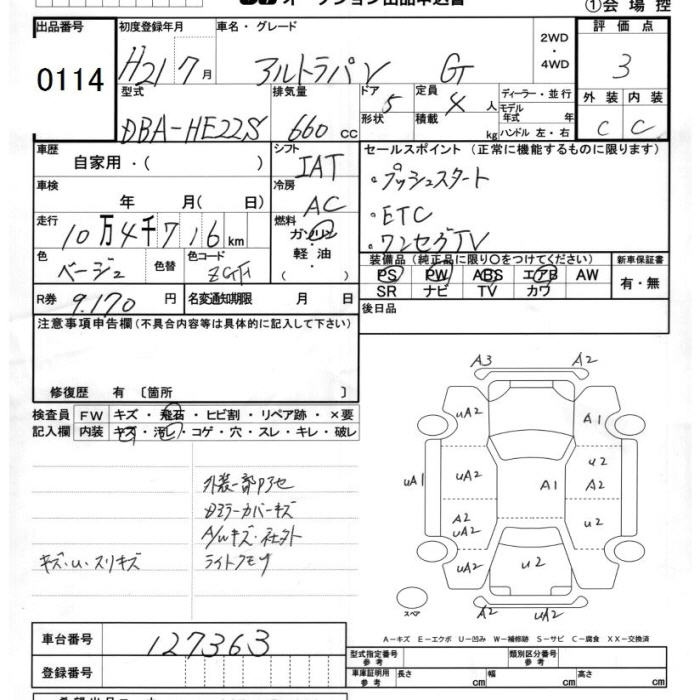 ①会場控
出品番号 初度登録年月 車名・グレード 2WD・4WD 評価点
0114 H21 7月 アルトラパン G 3
型式 排気量 ドア 定員 ディーラー・並行 外装 内装
DBA-HE22S 660cc 5 4人 モデル年式 年 C C
形状 積載 kg ハンドル 左・右
車歴 シフト セールスポイント (正常に機能するものに限ります)
自家用・( ) IAT
車検 冷房 ・プッシュスタート
年 月(日) AC ・ETC
走行 燃料 ・ワンセグTV
10万4千716km ガソリン・軽油・( )
装備品(純正品に限り〇をつけてください) 新車保証書
色 色替 色コード PS PW ABS エアB AW 有・無
ベージュ SR ナビ TV カワ
R券 9.170円 名変通知期限 月 日 後日品
注意事項申告欄(不具合内容等は具体的に記入して下さい)
修復歴 有 〔箇所 〕
検査員 FW キズ・飛石・ヒビ割・リペア跡・×要
記入欄 内装 キズ・汚レ・コゲ・穴・スレ・キレ・破レ
外装一部アセ
ミラーカバーキズ
A/Wキズ・社外
キズ・U・スリキズ ライトクモリ
A3 A2
UA2 A1
UA1 UA2 A1 U2
A2 UA2 U2
UA2 U2 A2
スペア A2 UA2
A-キズ E-エクボ U-凹み W-補修跡 S-サビ C-腐食 XX-交換済
車台番号 127363
登録番号
型式指定番号 参考 類別区分番号 参考
車庫証明用 参考 長さ cm 幅 cm 高さ cm